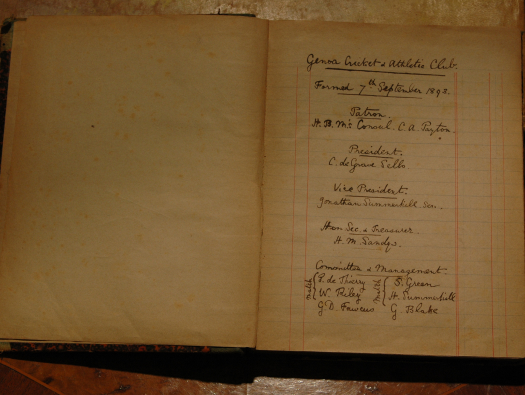 Genoa Cricket & Athletic Club.
Formed 7th September 1893.
Patron.
H. B. M's Consul. C. A. Payton.
President.
C. de Grave Sells.
Vice President.
Jonathan Summerhill Sen.
Hon Sec. & Treasurer
H. M. Sandys.
Committee & Management
P. de Thierry S. Green
W. Riley H. Summerhill
G. D. Fawcus G. Blake